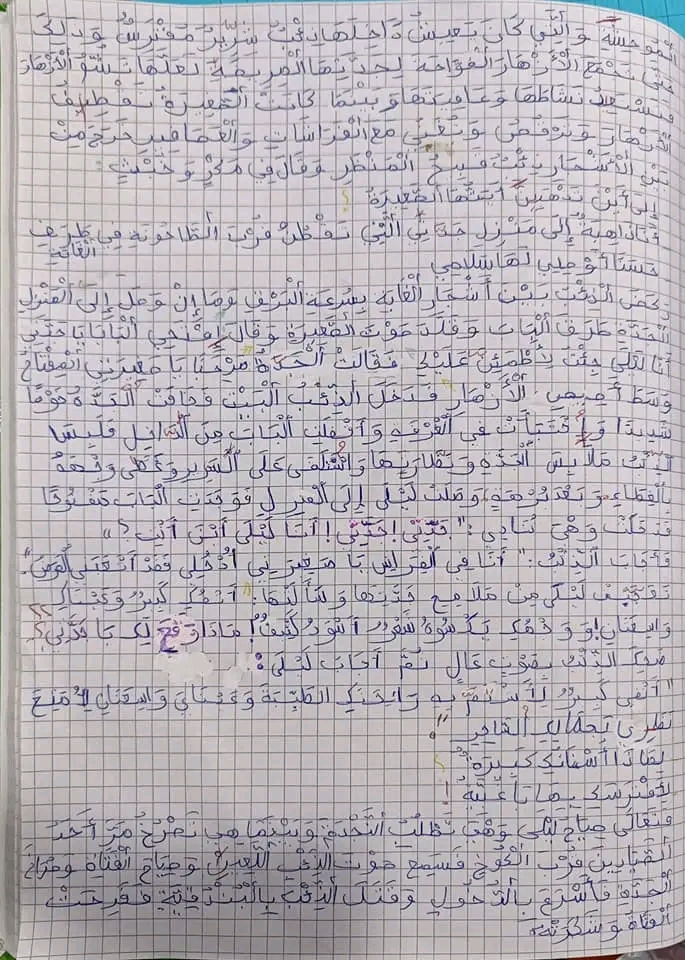 الموحشة والتي كان يعيش داخلها ذئب شرير مفترس وذلك
حتى تجمع الأزهار الفواحة لجدتها المريضة لعلها تشم الأزهار
فتستعيد نشاطها وعافيتها وبينما كانت الصغيرة تقطف
الأزهار وترقص وتغني مع الفراشات والعصافير خرج من
بين الأشجار ذئب قبيح المنظر وقال في مكر وخبث:
إلى أين تذهبين أيتها الصغيرة؟
أنا ذاهبة إلى منزل جدتي التي تقطن قرب الطاحونة في طريف
الغابة
حسنا أوصلي لها سلامي
ركض الذئب بين أشجار الغابة بسرعة البرق وما إن وصل إلى المنزل
الجدة طرق الباب وقلد صوت الصغيرة وقال افتحي الباب يا جدتي
أنا ليلى جئت لأطمئن عليك فقالت الجدة مرحبا يا صغيرتي المفتاح
وسط أصيص الأزهار فدخل الذئب البيت فخافت الجدة خوفا
شديدا واختبأت في الغرفة وأقفلت الباب من الداخل فلبس
الذئب ملابس الجدة ونظاراتها واستلقى على السرير وغطى وجهه
بالغطاء وبعد برهة وصلت ليلى إلى المنزل فوجدت الباب مفتوحا
فدخلت وهي تنادي: "جدتي! جدتي! أنا ليلى أين أنت؟"
فأجاب الذئب: "أنا في الفراش يا صغيرتي أدخلي فقد أتعبني المرض".
تعجبت ليلى من ملامح جدتها وسألتها: "أنفك كبير وعيناك
واسعتان! ووجهك يكسوه شعر أسود كثيف! ماذا وقع لك يا جدتي؟"
ضحك الذئب بصوت عال ثم أجاب ليلى:
"أنفي كبير لأشتم به رائحتك الطيبة وعيناي واسعتان لأمتع
نظري بجمالك الساحر"
لماذا أسنانك كبيرة؟
لأفترسك بها يا غبية!
فتعالى صياح ليلى وهي تطلب النجدة وبينما هي تصرخ مر أحد
الصيادين قرب الكوخ فسمع صوت الذئب اللعين وصياح الفتاة وصراخ
الجدة فأسرع بالدخول وقتل الذئب بالبندقية ففرحت
الفتاة وشكرته